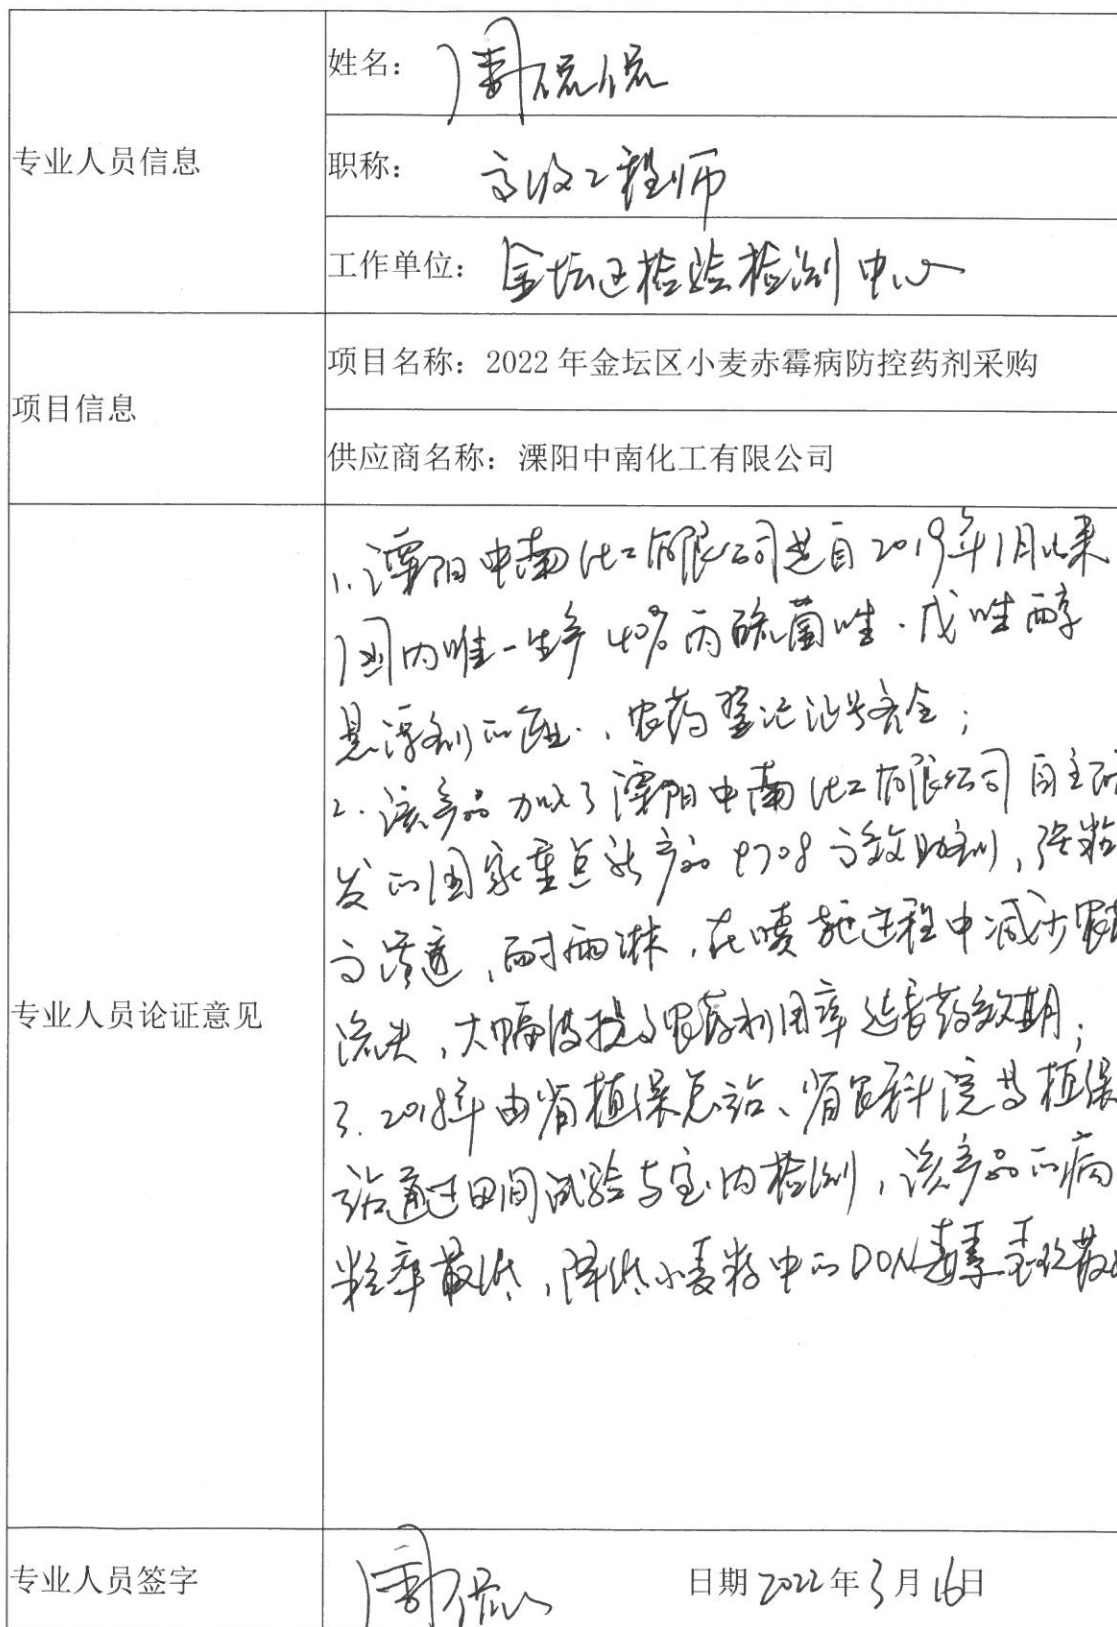 姓名：
专业人员信息
职称：高级工程师
工作单位：金坛区检验检测中心
项目名称：2022年金坛区小麦赤霉病防控药剂采购
项目信息
供应商名称：溧阳中南化工有限公司
1.溧阳中南化工有限公司是自2019年1月以来
国内唯一生产40%丙硫菌唑·戊唑醇
悬浮剂的企业，农药登记证号齐全；
2.该产品加入了溧阳中南化工有限公司自主研
发的国家重点新产品9708高效助剂，强粘
高渗透，耐雨淋，在喷施过程中减少农药
流失，大幅度提高农药利用率延长药效期；
专业人员论证意见
3.2018年由省植保总站、省农科院等植保
站通过田间试验与室内检测，该产品的病
粒率最低，降低小麦籽中的DON毒素
专业人员签字
日期2022年3月16日